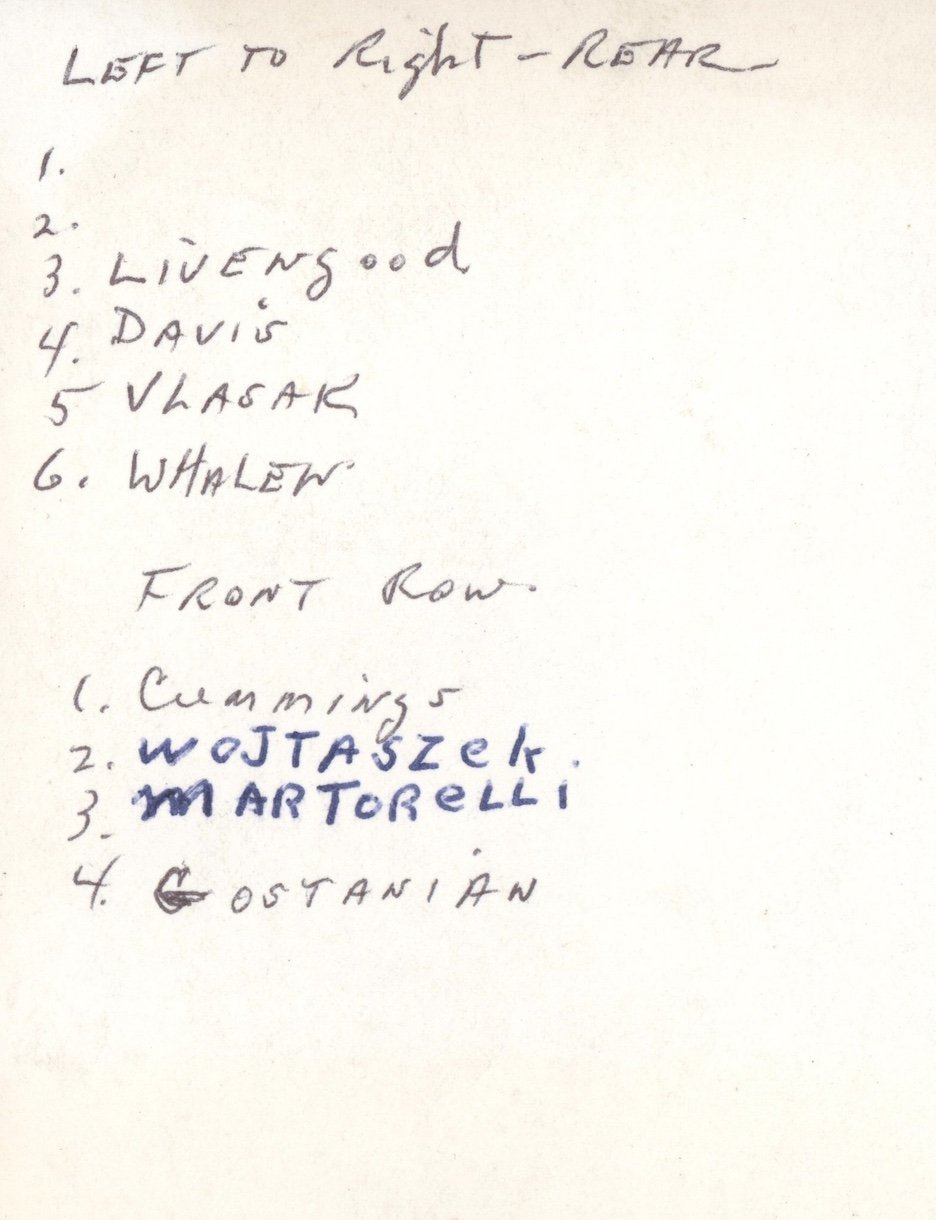 LEFT TO Right - REAR
1.
2.
3. LIVENgood
4. DAVIS
5 VLASAK
6. WHALEN
FRONT ROW.
1. Cummings
2. WOJTASZek.
3. MARTOReLLI
4. COSTANIAN